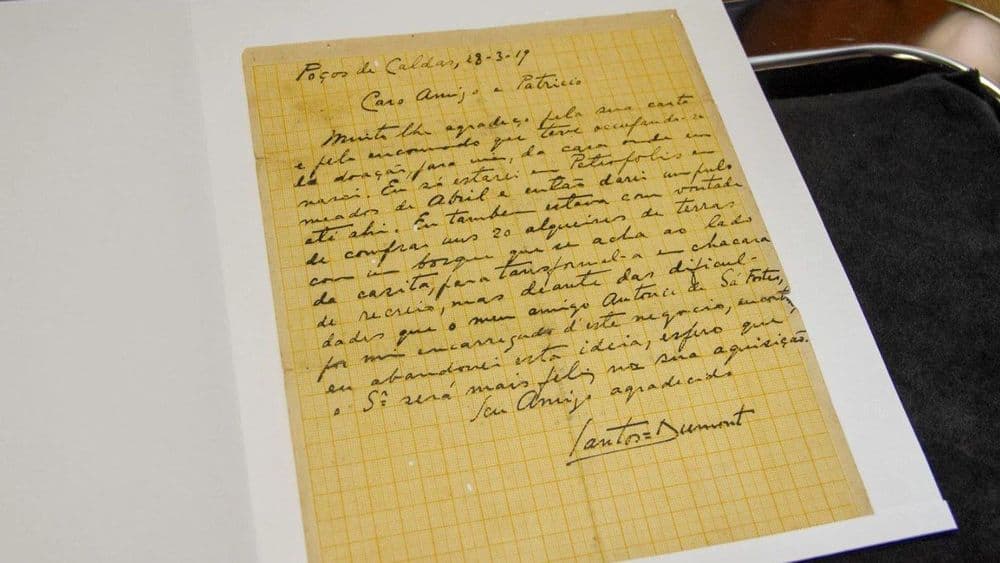 Poços de Caldas, 28-3-19
Caro Amigo e Patricio
Muito lhe agradeço pela sua carta
e pelo encommodo que teve occupando-se
da doação, para mim, da casa onde eu
nasci. Eu só estarei em Petropolis em
meados de Abril e então darei um pulo
ati ahi. Eu tambem estava com vontade
de comprar uns 20 alqueires de terras
com um bosque que se acha ao lado
da casita, para transformal-a em chacara
de recreio, mas deante das dificul-
dades que o meu amigo Antonio de Sá Fortes,
por mim encarregado d'este negocio, encontrou,
eu abandonei esta ideia, espero que
o Sr será mais feliz na sua aquisição.
Seu Amigo agradecido
Santos=Dumont